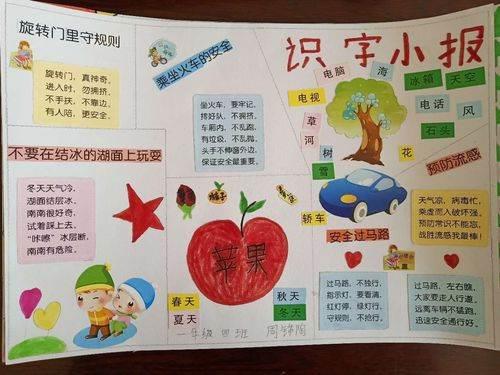 旋转门里守规则
旋转门，真神奇。
进入时，勿拥挤。
不手扶，不靠边。
有人陪，更安全。
乘坐火车的安全
坐火车，要牢记。
排好队，不拥挤。
车厢内，不乱跑。
有垃圾，不乱抛。
头手不伸窗外边，
保证安全最重要。
识字小报
电脑
海
冰箱
天空
电视
电话
风
草
河
石头
树
花
雪
轿车
不要在结冰的湖面上玩耍
冬天天气冷，
湖面结层冰。
南南很好奇，
试着踩上去。
“咔嚓”冰层断，
南南有危险。
苹果
春天
夏天
秋天
冬天
一年级 四 班
预防流感
天气凉，病毒忙，
乘虚而入破坏强。
预防常识不能忘，
战胜流感我最棒！
安全过马路
过马路，不独行，
指示灯，要看清。
红灯停，绿灯行，
守规则，不抢行。
过马路，左右瞧，
大家要走人行道。
远离车辆不猛跑，
迅速安全通行好。